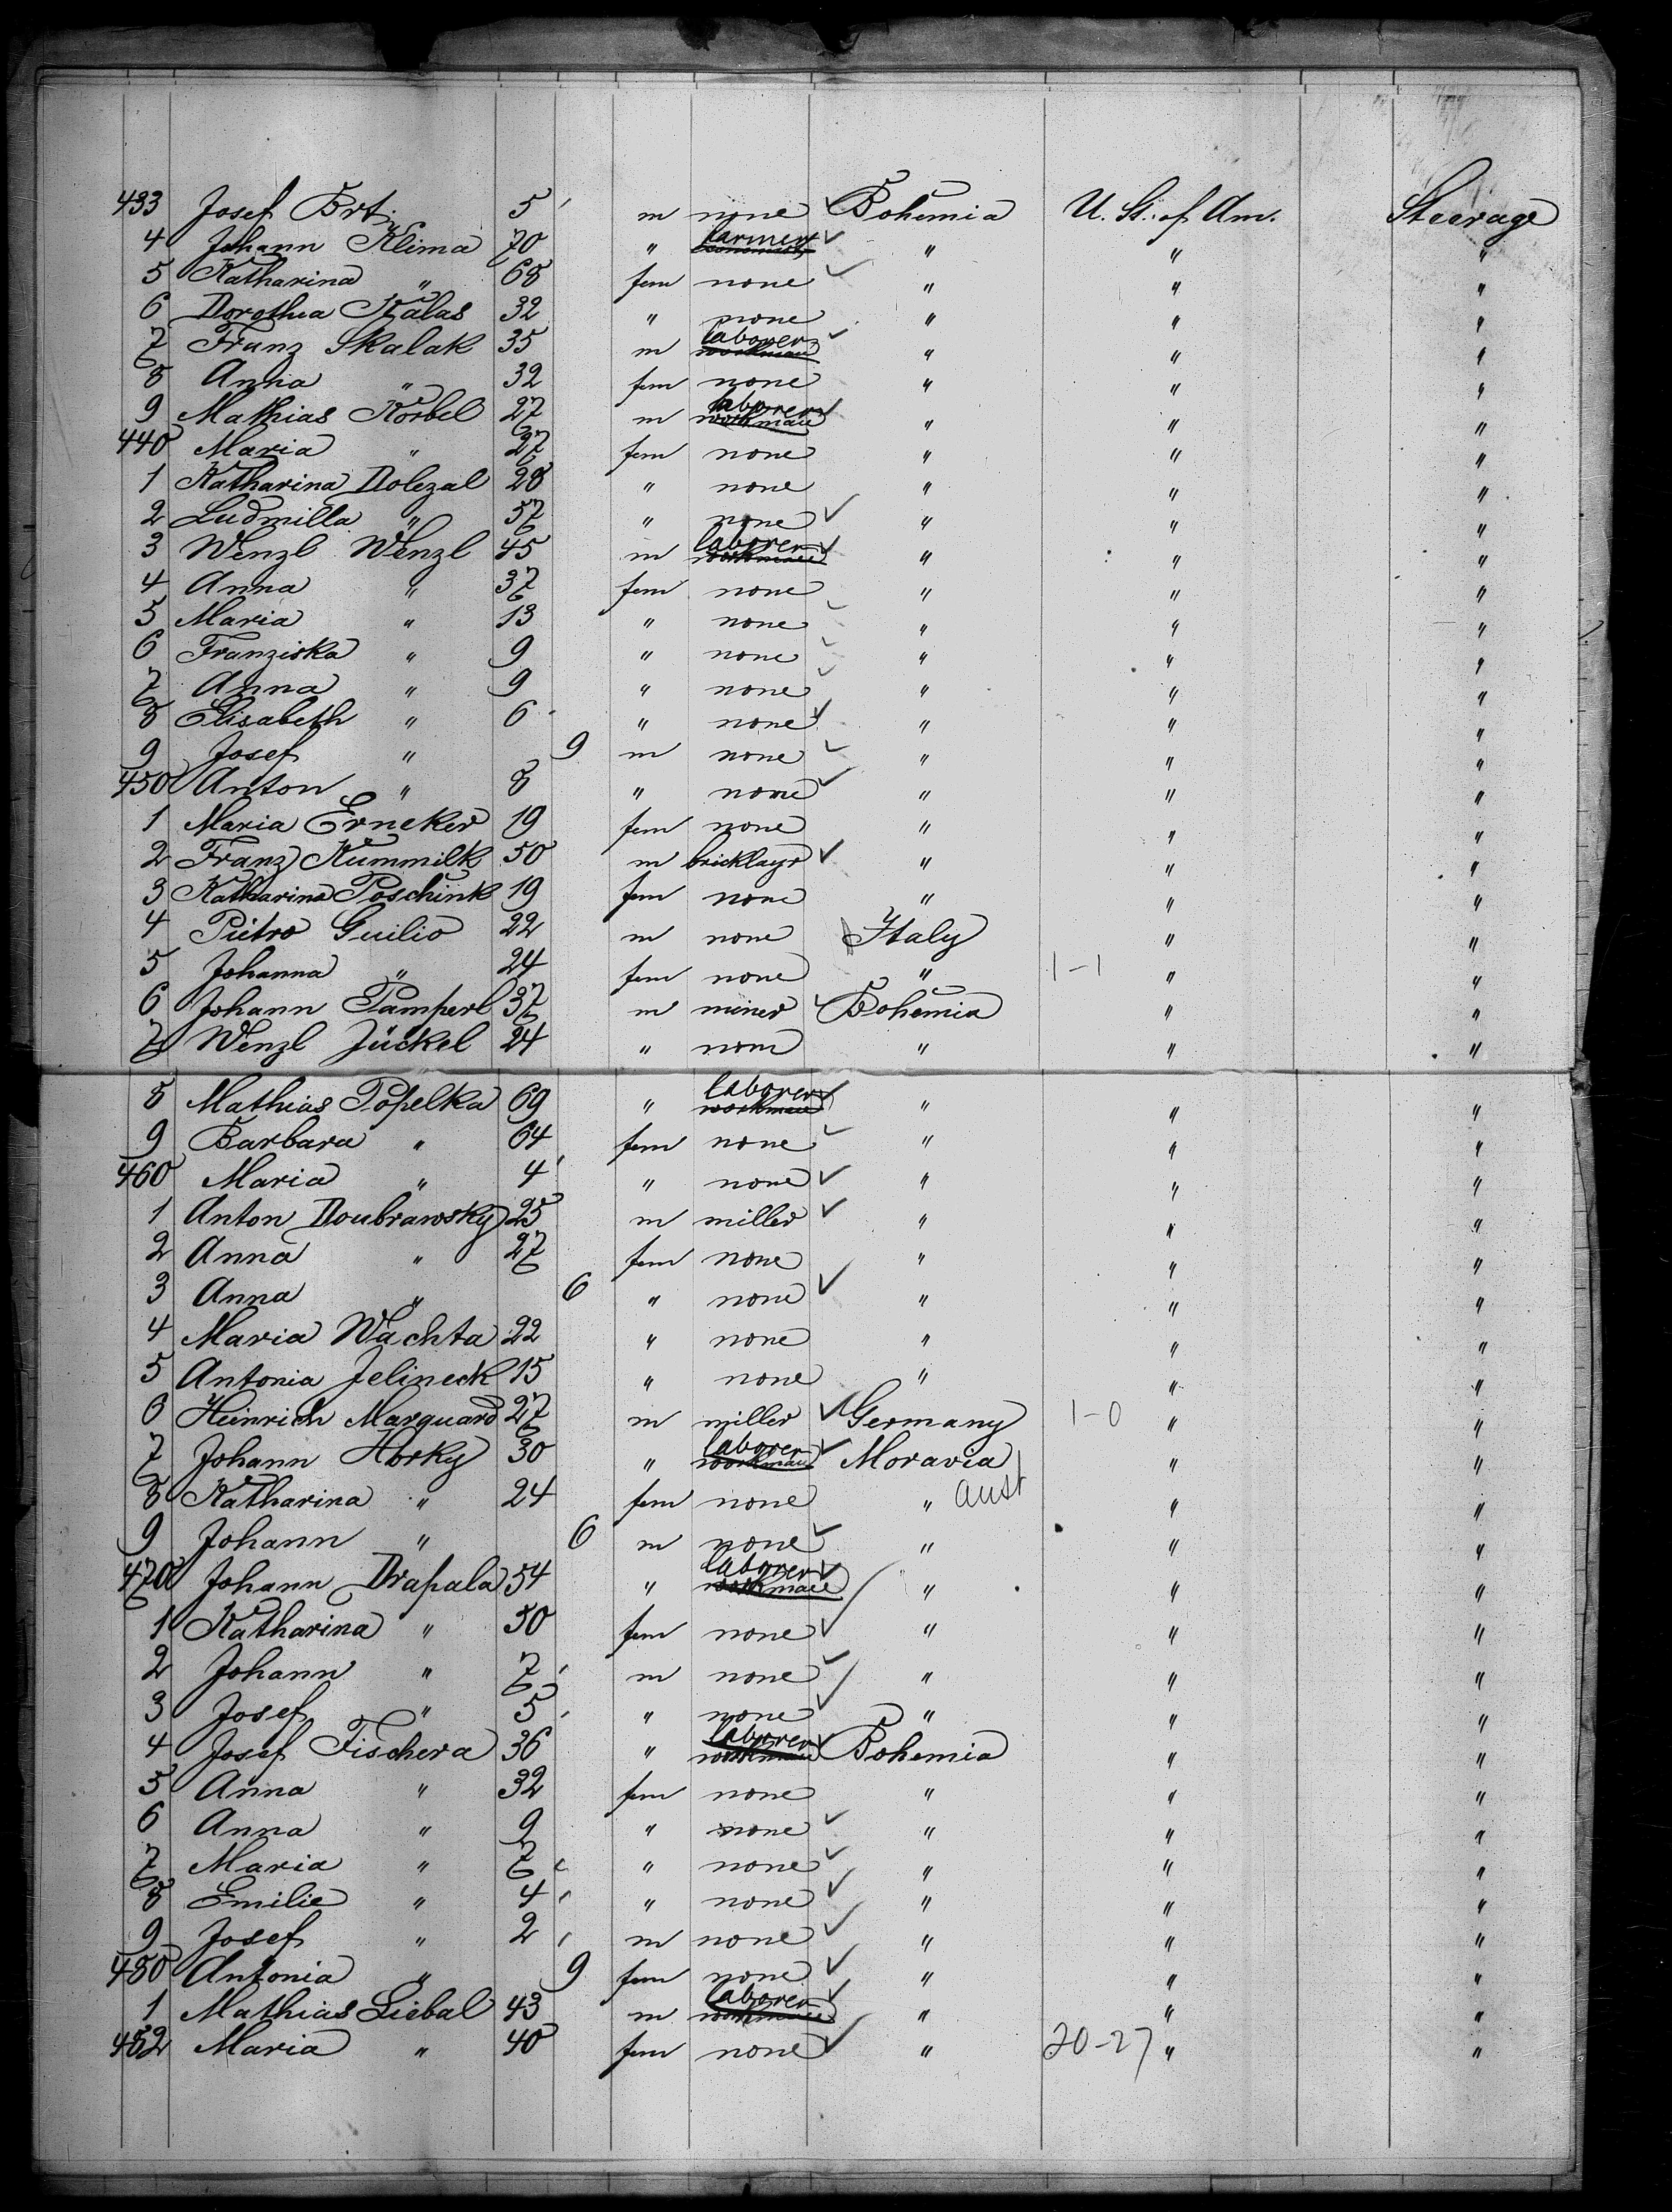 433 Josef Brt. 5 m none Bohemia U. St. of Am. Steerage
4 Johann Klima 70 " farmer " " "
5 Katharina " 68 fem none " " "
6 Dorothea Kálas 32 " none " " "
7 Franz Skalak 35 m laborer workman " " "
8 Anna " 32 fem none " " "
9 Mathias Korbel 27 m laborer workman " " "
440 Maria " 27 fem none " " "
1 Katharina Dolezal 28 " none " " "
2 Ludmilla " 57 " none " " "
3 Wenzl Wenzl 45 m laborer workman " " "
4 Anna " 37 fem none " " "
5 Maria " 13 " none " " "
6 Franziska " 9 " none " " "
7 Anna " 9 " none " " "
8 Elisabeth " 6 " none " " "
9 Josef " 9 m none " " "
450 Anton " 8 " none " " "
1 Maria Erneker 19 fem none " " "
2 Franz Kummilk 50 m bricklayr " " "
3 Katharina Poschink 19 fem none " " "
4 Pietro Guilio 22 m none Italy " "
5 Johanna " 24 fem none " 1-1 " "
6 Johann Pamperl 37 m miner Bohemia " "
7 Wenzl Jückel 24 " non " " "
8 Mathias Popelka 69 " laborer workman " " "
9 Barbara " 64 fem none " " "
460 Maria " 4 " none " " "
1 Anton Doubrawsky 25 m miller " " "
2 Anna " 27 fem none " " "
3 Anna " 6 " none " " "
4 Maria Wachta 22 " none " " "
5 Antonia Jelineck 15 " none " " "
6 Heinrich Marquard 27 m miller Germany 1-0 " "
7 Johann Horky 30 " laborer workman Moravia " "
8 Katharina " 24 fem none " Aust " "
9 Johann " 6 m none " " "
470 Johann Drapala 54 " laborer workman " " "
1 Katharina " 50 fem none " " "
2 Johann " 7 m none " " "
3 Josef " 5 " none " " "
4 Josef Fischera 36 " laborer workman Bohemia " "
5 Anna " 32 fem none " " "
6 Anna " 9 " none " " "
7 Maria " 7 " none " " "
8 Emilie " 4 " none " " "
9 Josef " 2 m none " " "
480 Antonia " 9 fem none " " "
1 Mathias Liebal 43 m laborer workman " " "
482 Maria " 40 fem none " 20-27 " "